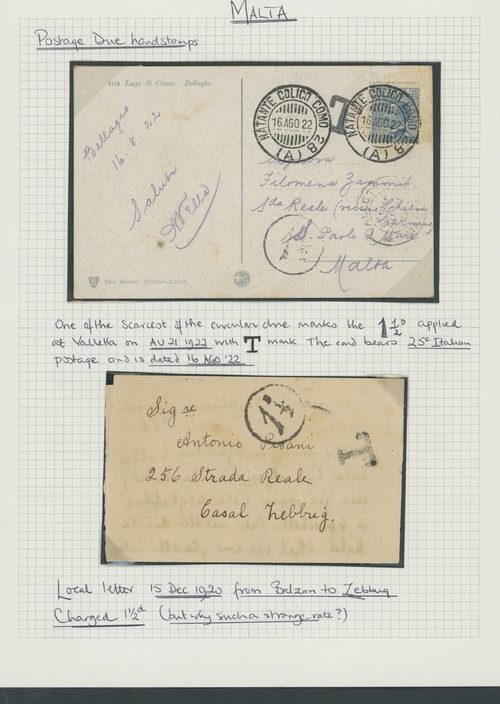 MALTA
Postage Due handstamps
5178 Lago di Como. Bellagio.
Bellagio
16.8.22
Saluti
NATANTE COLICO COMO
16 AGO 22
(A) 82
T
NATANTE COLICO COMO
16 AGO 22
(A) 82
Signora
Filomena Zammit
Sda Reale
S. Paolo a Mare
Malta
One of the Scarcest of the circular due marks the 1½D applied
at Valletta on AU 21 1922 with T mark. The card bears 25c Italian
postage and is dated 16 AGO '22
1½
T
Sig re
Antonio Pisani
256 Strada Reale
Casal Zebbug.
Local letter 15 Dec 1920 from Balzan to Zebbug
Charged 1½d (but why such a strange rate?)